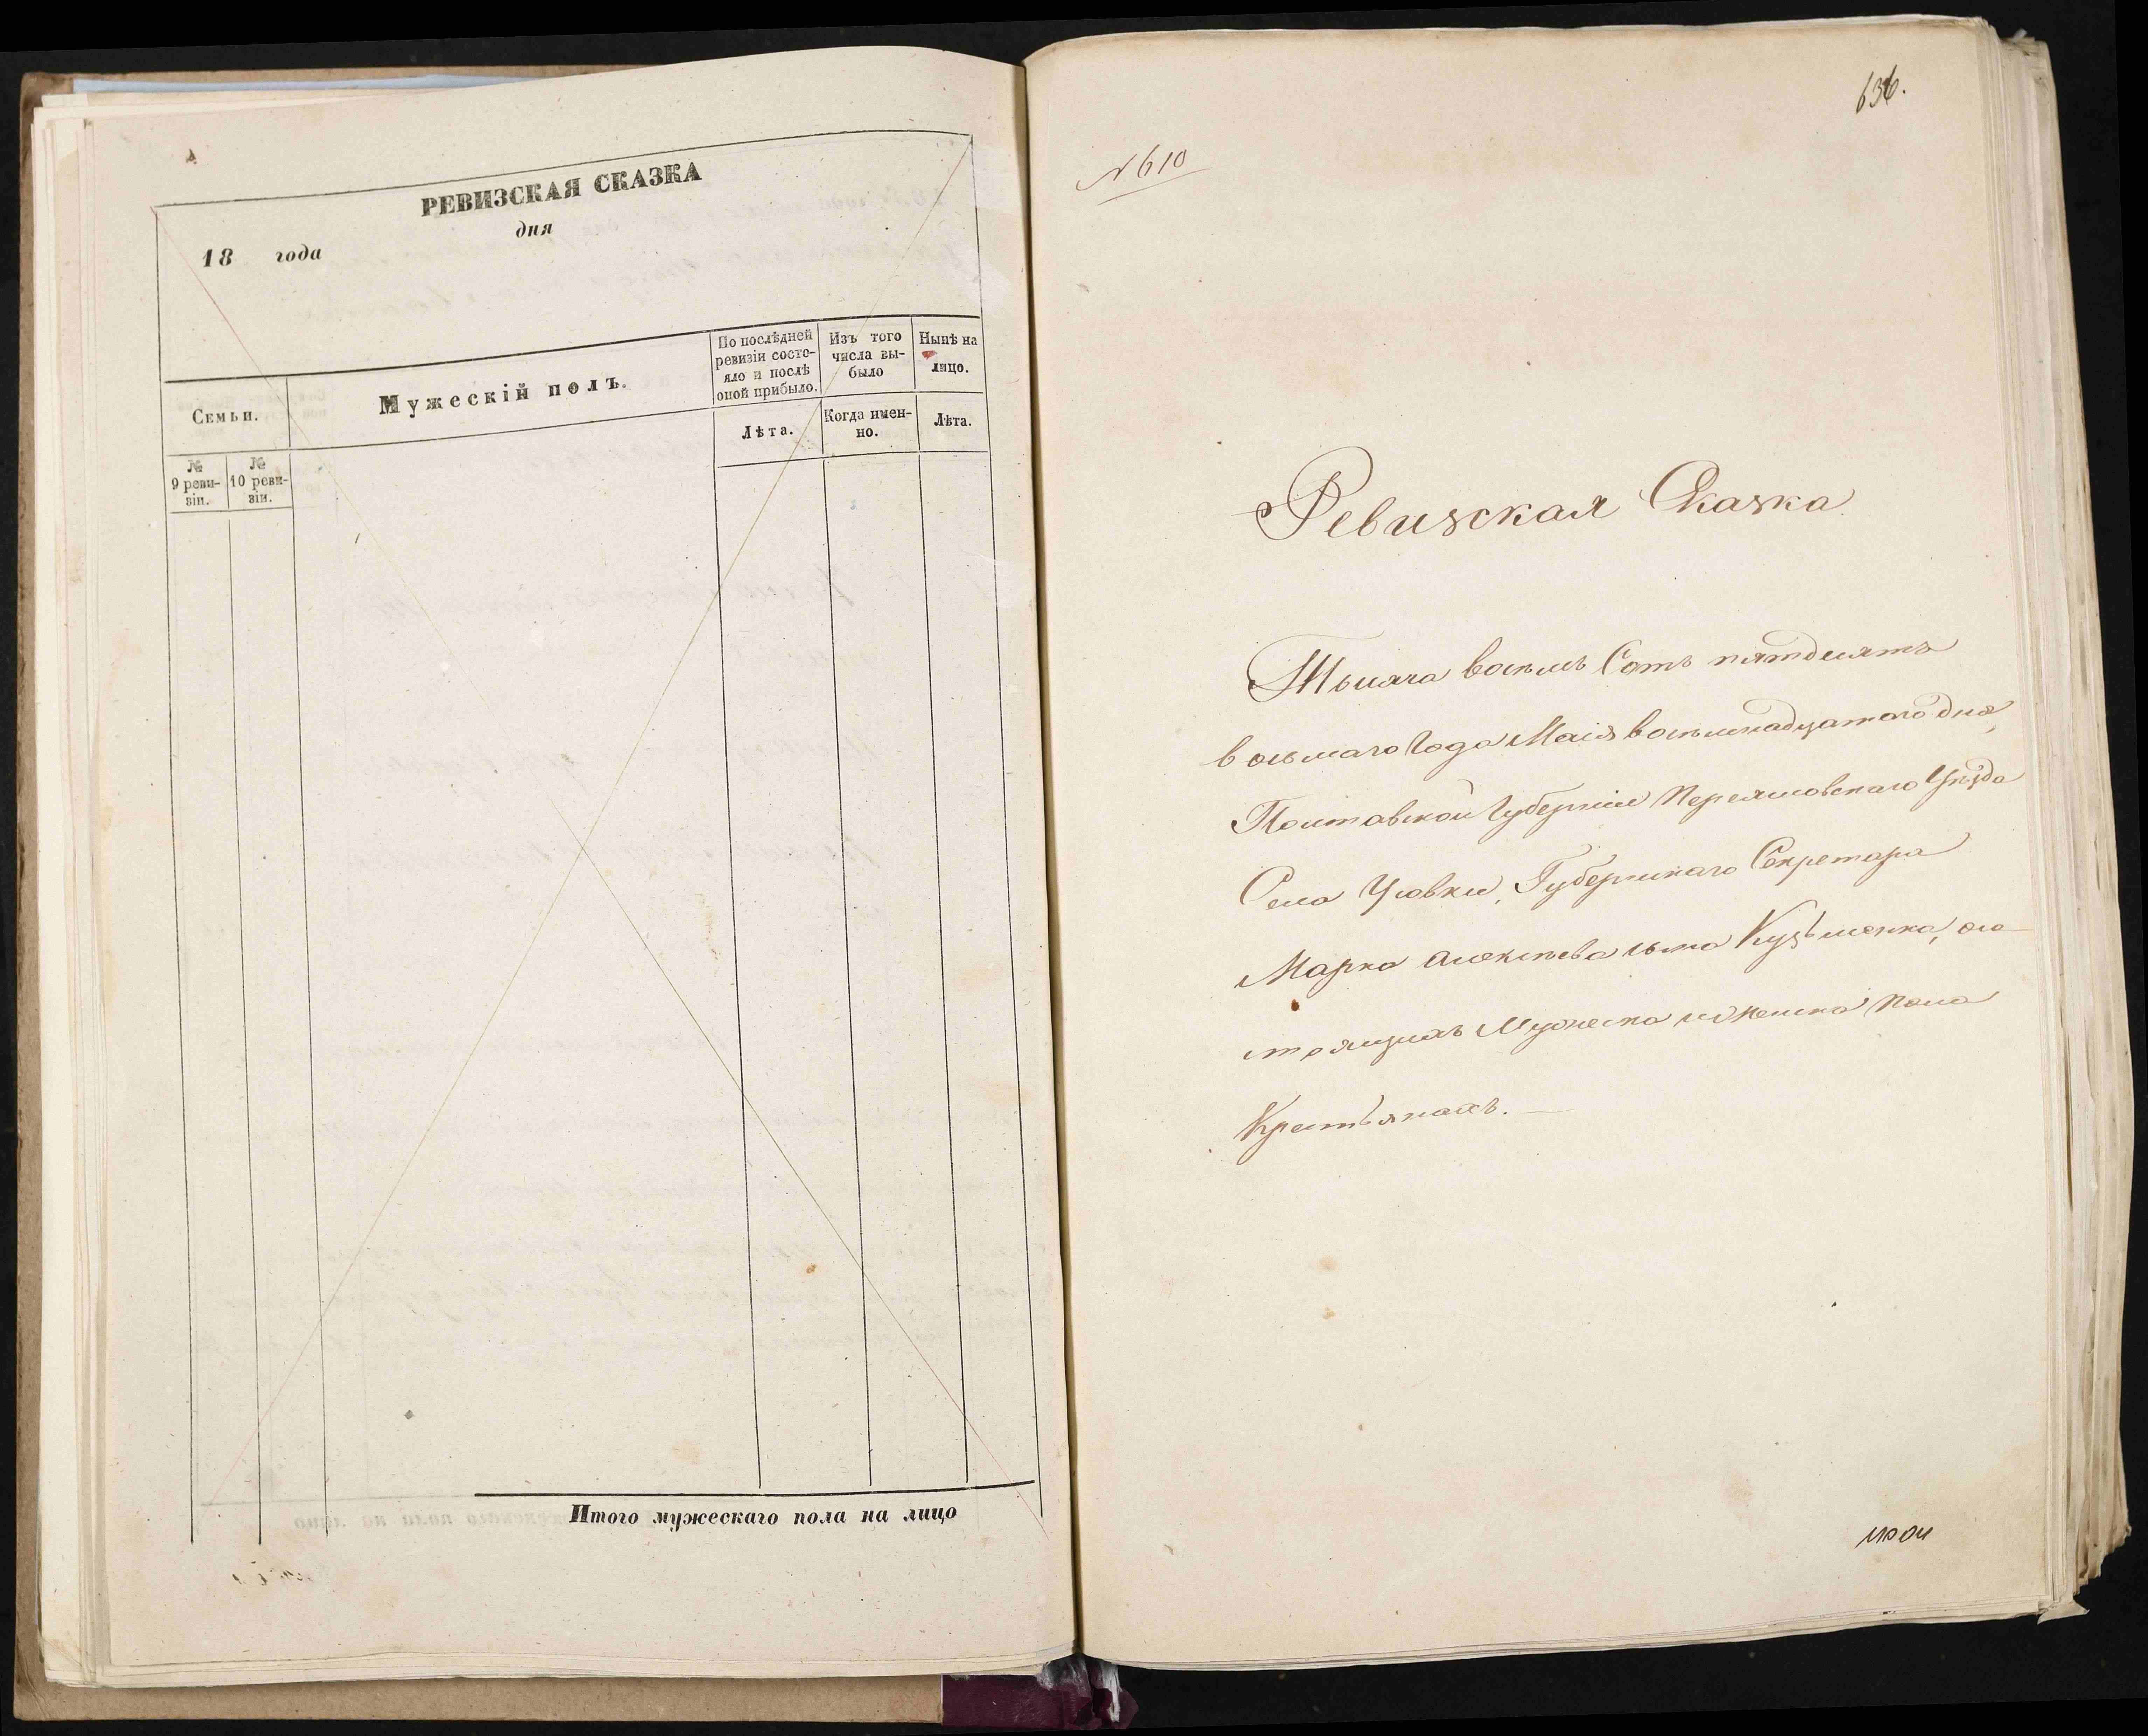 РЕВИЗСКАЯ СКАЗКА
18 года дня
Семьи.
Мужескій полъ.
По послѣдней ревизіи состо-
яло и послѣ
оной прибыло.
Изъ того
числа вы-
было
Нынѣ на
лицо.
Лѣта.
Когда имен-
но.
Лѣта.
№
9 реви-
зіи.
№
10 реви-
зіи.
Итого мужескаго пола на лицо
636.
№ 610
Ревизская Сказка
Тысяча восемь Сотъ пятдесятъ
восьмаго Года Маія восемнадцатаго дня,
Полтавской Губерніи Переяславскаго Уѣзда
Села Усовки, Губернскаго Секретаря
Марка Алексѣева сына Кузьменка, со-
стоящихъ Мужеска и женска пола
Крестьянахъ.